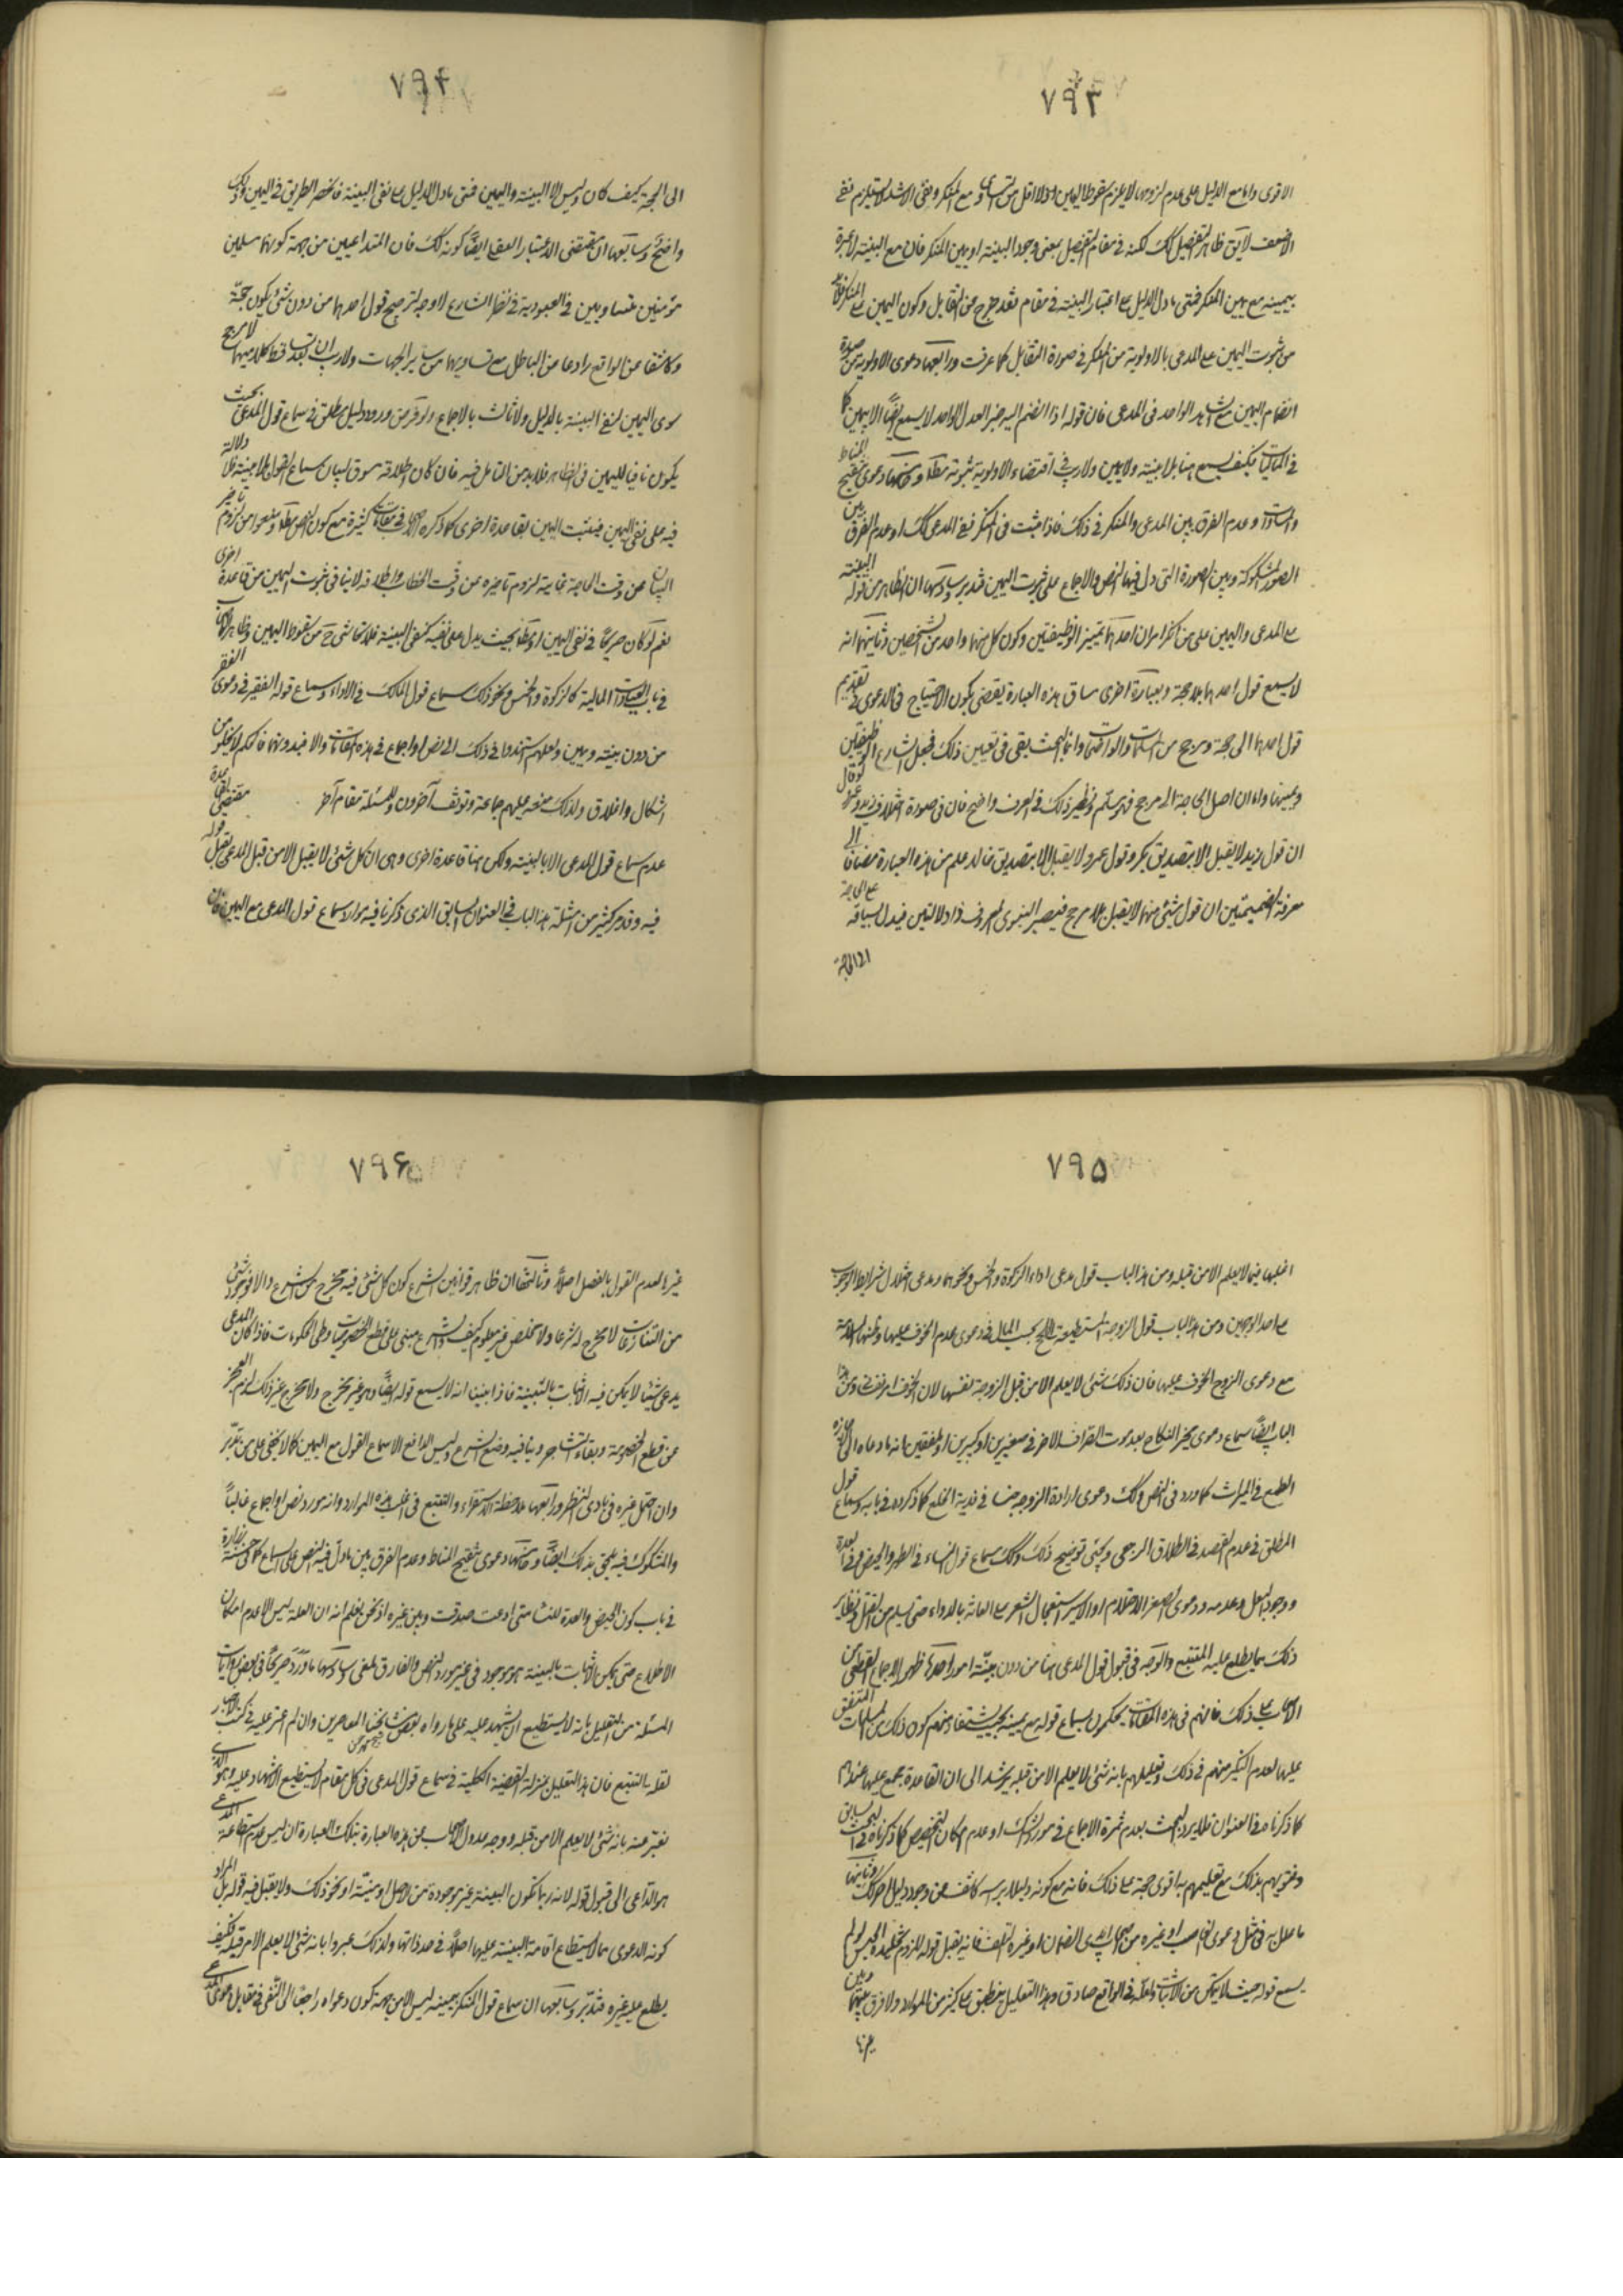 ٧٩٣
الاقوى واما مع الدليل على عدم لزومها لا يلزم سقوط اليمين اولا اقل من التساوى مع المنكر ونفى الاشد لا يستلزم نفى
الاضعف لا يق ظاهر التفصيل كك لكنه فى مقام التفصيل بمعنى وجود البينة او يمين المنكر فان مع البينة لا عبرة
بيمينه مع يمين المنكر فمتى ما دل الدليل على اعتبار البينة فى مقام فقد خرج عن التقابل وكون اليمين على المنكر
من ثبوت اليمين على المدعى بالاولوية من المنكر فى صورة التقابل كما عرفت ورابعها دعوى الاولوية من صورة
انضمام اليمين مع الشاهد الواحد فى المدعى فان قوله اذا انضم اليه خبر العدل الواحد لا يسمع ايضا الا بيمين كما
فى الماليات فكيف يسمع هنا بلا بينة ولا يمين ولا ريب فى اقتضاء الاولوية ثبوته مطلقا وخامسها دعوى تنقيح المناط
وعدم الفرق بين المدعى والمنكر فى ذلك فاذا ثبت فى المنكر ففى المدعى كك او عدم الفرق بين
الصور المشكوكة وبين الصورة التى دل فيها النص والاجماع على ثبوت اليمين فتدبر وسادسها ان الظاهر من قوله البينة
على المدعى واليمين على من انكر امران احدهما تمييز الوظيفتين وكون كل منهما واحد من الشخصين وثانيهما انه
لا يسمع قول احدهما بلا حجة وبعبارة اخرى مساق هذه العبارة يقضى بكون الاحتياج فى الدعوى فى تقديم
قول احدهما الى حجة ومرجح من المسلمات والواضحات وانما البحث بقى فى تعيين ذلك فجعل الشارع الوظيفتين
وبينهما واما ان اصل الحاجة الى مرجح فهو مسلم ونظير ذلك فى العرف واضح فان فى صورة اختلاف زيد وعمرو لو قال
ان قول زيد لا يقبل الا بتصديق بكر وقول عمرو لا يقبل الا بتصديق خالد علم من هذه العبارة مضافا الى
معرفة الضميمتين ان قول شئ منهما لا يقبل بلا مرجح فيصير النبوى المعروف ذا دلالتين فيدل بسياقه على الحاجة
الى الحجة
٧٩٤
الى الحجة كيف كان وليس الا البينة واليمين فمتى ما دل الدليل على نفى البينة فانحصر الطريق فى اليمين وذلك
واضح وسابعها ان مقتضى الاعتبار العقلى ايضا كونه كك فان المتداعيين من جهة كونهما مسلمين
مؤمنين متساويين فى العبودية فى نظر الشارع لا وجه لترجيح قول احدهما من دون شئ يكون حجة
وكاشفا عن الواقع رادعا عن الباطل مع تساويهما من ساير الجهات ولا ريب ان بعد تساقط كلاميهما لا مرجح
سوى اليمين لنفى البينة بالدليل ولا ثالث بالاجماع ولو فرض ورود دليل مطلق فى سماع قول المدعى بحيث
يكون نافيا لليمين فى الظاهر فلا بد من التامل فيه فان كان اطلاقه مسوق لبيان سماع القول بلا بينة فلا دلالة
فيه على نفى اليمين فيثبت اليمين بقاعدة اخرى كما ذكره الاصحاب فى مقامات كثيرة مع كون النص مطلقا ومنعوا من لزوم تاخير
البيان عن وقت الحاجة غاية لزوم تاخيره عن وقت الخطاب واطلاقه لا ينافى ثبوت اليمين من قاعدة اخرى
نعم لو كان صريحا فى نفى اليمين او مطلقا بحيث يدل على نفيه كنفى البينة فلا تحاشى ح من سقوط اليمين وظاهر الاصحاب
فى باب العبادات المالية كالزكوة والخمس ونحو ذلك سماع قول المالك فى الاداء وسماع قول الفقير فى دعوى الفقر
من دون بينة ويمين ولعلهم استندوا فى ذلك الى نص او اجماع فى هذه المقامات والا فبدونهما فالحكم لا يخلو من
اشكال واغلاق ولذلك منحه عليهم جماعة وتوقف آخرون وللمسئلة مقام آخر مقتضى القاعدة
عدم سماع قول المدعى الا بالبينة ولكن هنا قاعدة اخرى وهى ان كل شئ لا يقبل الا من قبل المدعى يقبل قوله
فيه وقد مر كثير من امثلة هذا الباب فى العنوان السابق الذى ذكرنا فيه موارد سماع قول المدعى مع اليمين فان
٧٩٥
اغلبها فيما لا يعلم الا من قبله ومن هذا الباب قول مدعى اداء الزكوة والخمس ونحوهما ومدعى اختلال شرايط الوجوب
على احد الوجهين ومن هذا الباب قول الزوجة المستطيعة للحج بحسب المال فى دعوى عدم الخوف عليها وظنها السلامة
مع دعوى الزوج الخوف عليها فان ذلك شئ لا يعلم الا من قبل الزوجة نفسها لان الخوف امر نفسى ومن هذا
الباب ايضا سماع دعوى مجيز النكاح بعد موت الطرف الاخر فى صغيرين او كبيرين او ملفقين بانه ما دعاه الى الاجازة
الطمع فى الميراث كما ورد فى النص وكك دعوى ارادة الزوجية هنا فى فدية الخلع كما ذكروه فى بابه وسماع قول
المطلق فى عدم القصد فى الطلاق الرجعى ويجئ توضيح ذلك وكك سماع قول النساء فى الطهر والحيض وفى العدة
ووجود البعل وعدمه ودعوى الصغير الاحتلام او الاسير استعجال الشعر على العانة بالدواء حتى يسلم من القتل ونظاير
ذلك مما يطلع عليه المتتبع والوجه فى قبول قول المدعى هنا من دون بينة امور احدها ظهور الاجماع القطعى من
الاصحاب على ذلك فانهم فى هذه المقامات يحكمون بسماع قوله مع يمينه بحيث يستفاد منهم كون ذلك من المسلمات المتفق
عليها لعدم النكير منهم فى ذلك وتعليلهم بانه شئ لا يعلم الا من قبله يرشد الى ان القاعدة مجمع عليها عندهم
كما ذكرناه فى العنوان فلا يرد البحث بعدم ثمرة الاجماع فى مورد الشك او عدم امكان التخصيص كما ذكرناه فى البحث السابق
وفتويهم بذلك مع تعليلهم به اقوى حجة على ذلك فانه مع كونه دليلا براسه كاشف عن وجود دليل اخر كك وثانيها
ما علل به فى مثل دعوى الغاصب او غيره من اصحاب ايدى الضمان او غيره التلف فانه يقبل قوله للزوم تخليده الحبس لو لم
يسمع قوله حيث لا يتمكن من الاثبات ولعله فى الواقع صادق وهذا التعليل ينطبق على كثير من الموارد ولا فرق بينها وبين
غيرها
٧٩٦
غيرها لعدم القول بالفصل اصلا وثالثها ان ظاهر قوانين الشرع كون كل شئ فيه مخرج من الشرع والا فوجود شئ
من التنازعات لا مخرج له شرعا ولا مخلص غير معلوم كيف والشرع مبنى على قطع الخصومات وطى الحكومات فاذا كان المدعى
يدعى شيئا لا يمكن فيه الاثبات بالبينة فاذا بنينا انه لا يسمع قوله ايضا وهو غير مخرج ولا مخرج غير ذلك لزم العجز
عن قطع الخصومة وبقاء التشاجر وينافيه وضع الشرع وليس الدافع الا سماع القول مع اليمين كما لا يخفى على من تدبر
وان احتمل غيره فى بادى النظر ورابعها ملاحظة الاستقراء والتتبع فى اغلب هذه الموارد وانه مورد نص او اجماع غالبا
والمشكوك فيه يلحق بذلك ايضا وخامسها دعوى تنقيح المناط وعدم الفرق بين ما دل فيه النص على السماع
فى باب كون الحيض والعدة للنساء متى ادعت صدقت وبين غيره اذ نحن نعلم انه ان العلة ليس الا عدم امكان
الاطلاع حتى يمكن الاثبات بالبينة هو موجود فى غير مورد النص والفارق ملغى وسادسها ما ورد صريحا فى بعض روايات
المسئلة من التعليل بانه لا يستطيع ان يشهد عليه على ما رواه بعض مشايخنا المعاصرين وان لم اعثر عليه فى كتب الاخبار
لقلة التتبع فان هذا التعليل بمنزلة القضية الكلية فى سماع قول المدعى فى كل مقام لا يستطيع الاشهاد عليه وهو الذى
نعبر عنه بانه شئ لا يعلم الا من قبله ووجه عدول الاصحاب عن هذه العبارة بتلك العبارة ان ليس عدم استطاعة المدعى
هو الداعى الى قبول قوله لانه ربما تكون البينة غير موجودة من الاصل او ميتة او نحو ذلك ولا يقبل فيه قوله بل المراد
كونه الدعوى مما لا يستطاع اقامة البينة عليها اصلا فى حد ذاتها ولذلك عبروا بانه شئ لا يعلم الا من قبله فكيف
يطلع عليه غيره فتدبر وسابعها ان سماع قول المنكر بيمينه ليس الا من جهة كون دعواه راجعا الى النفى فى مقابل دعوى المدعى